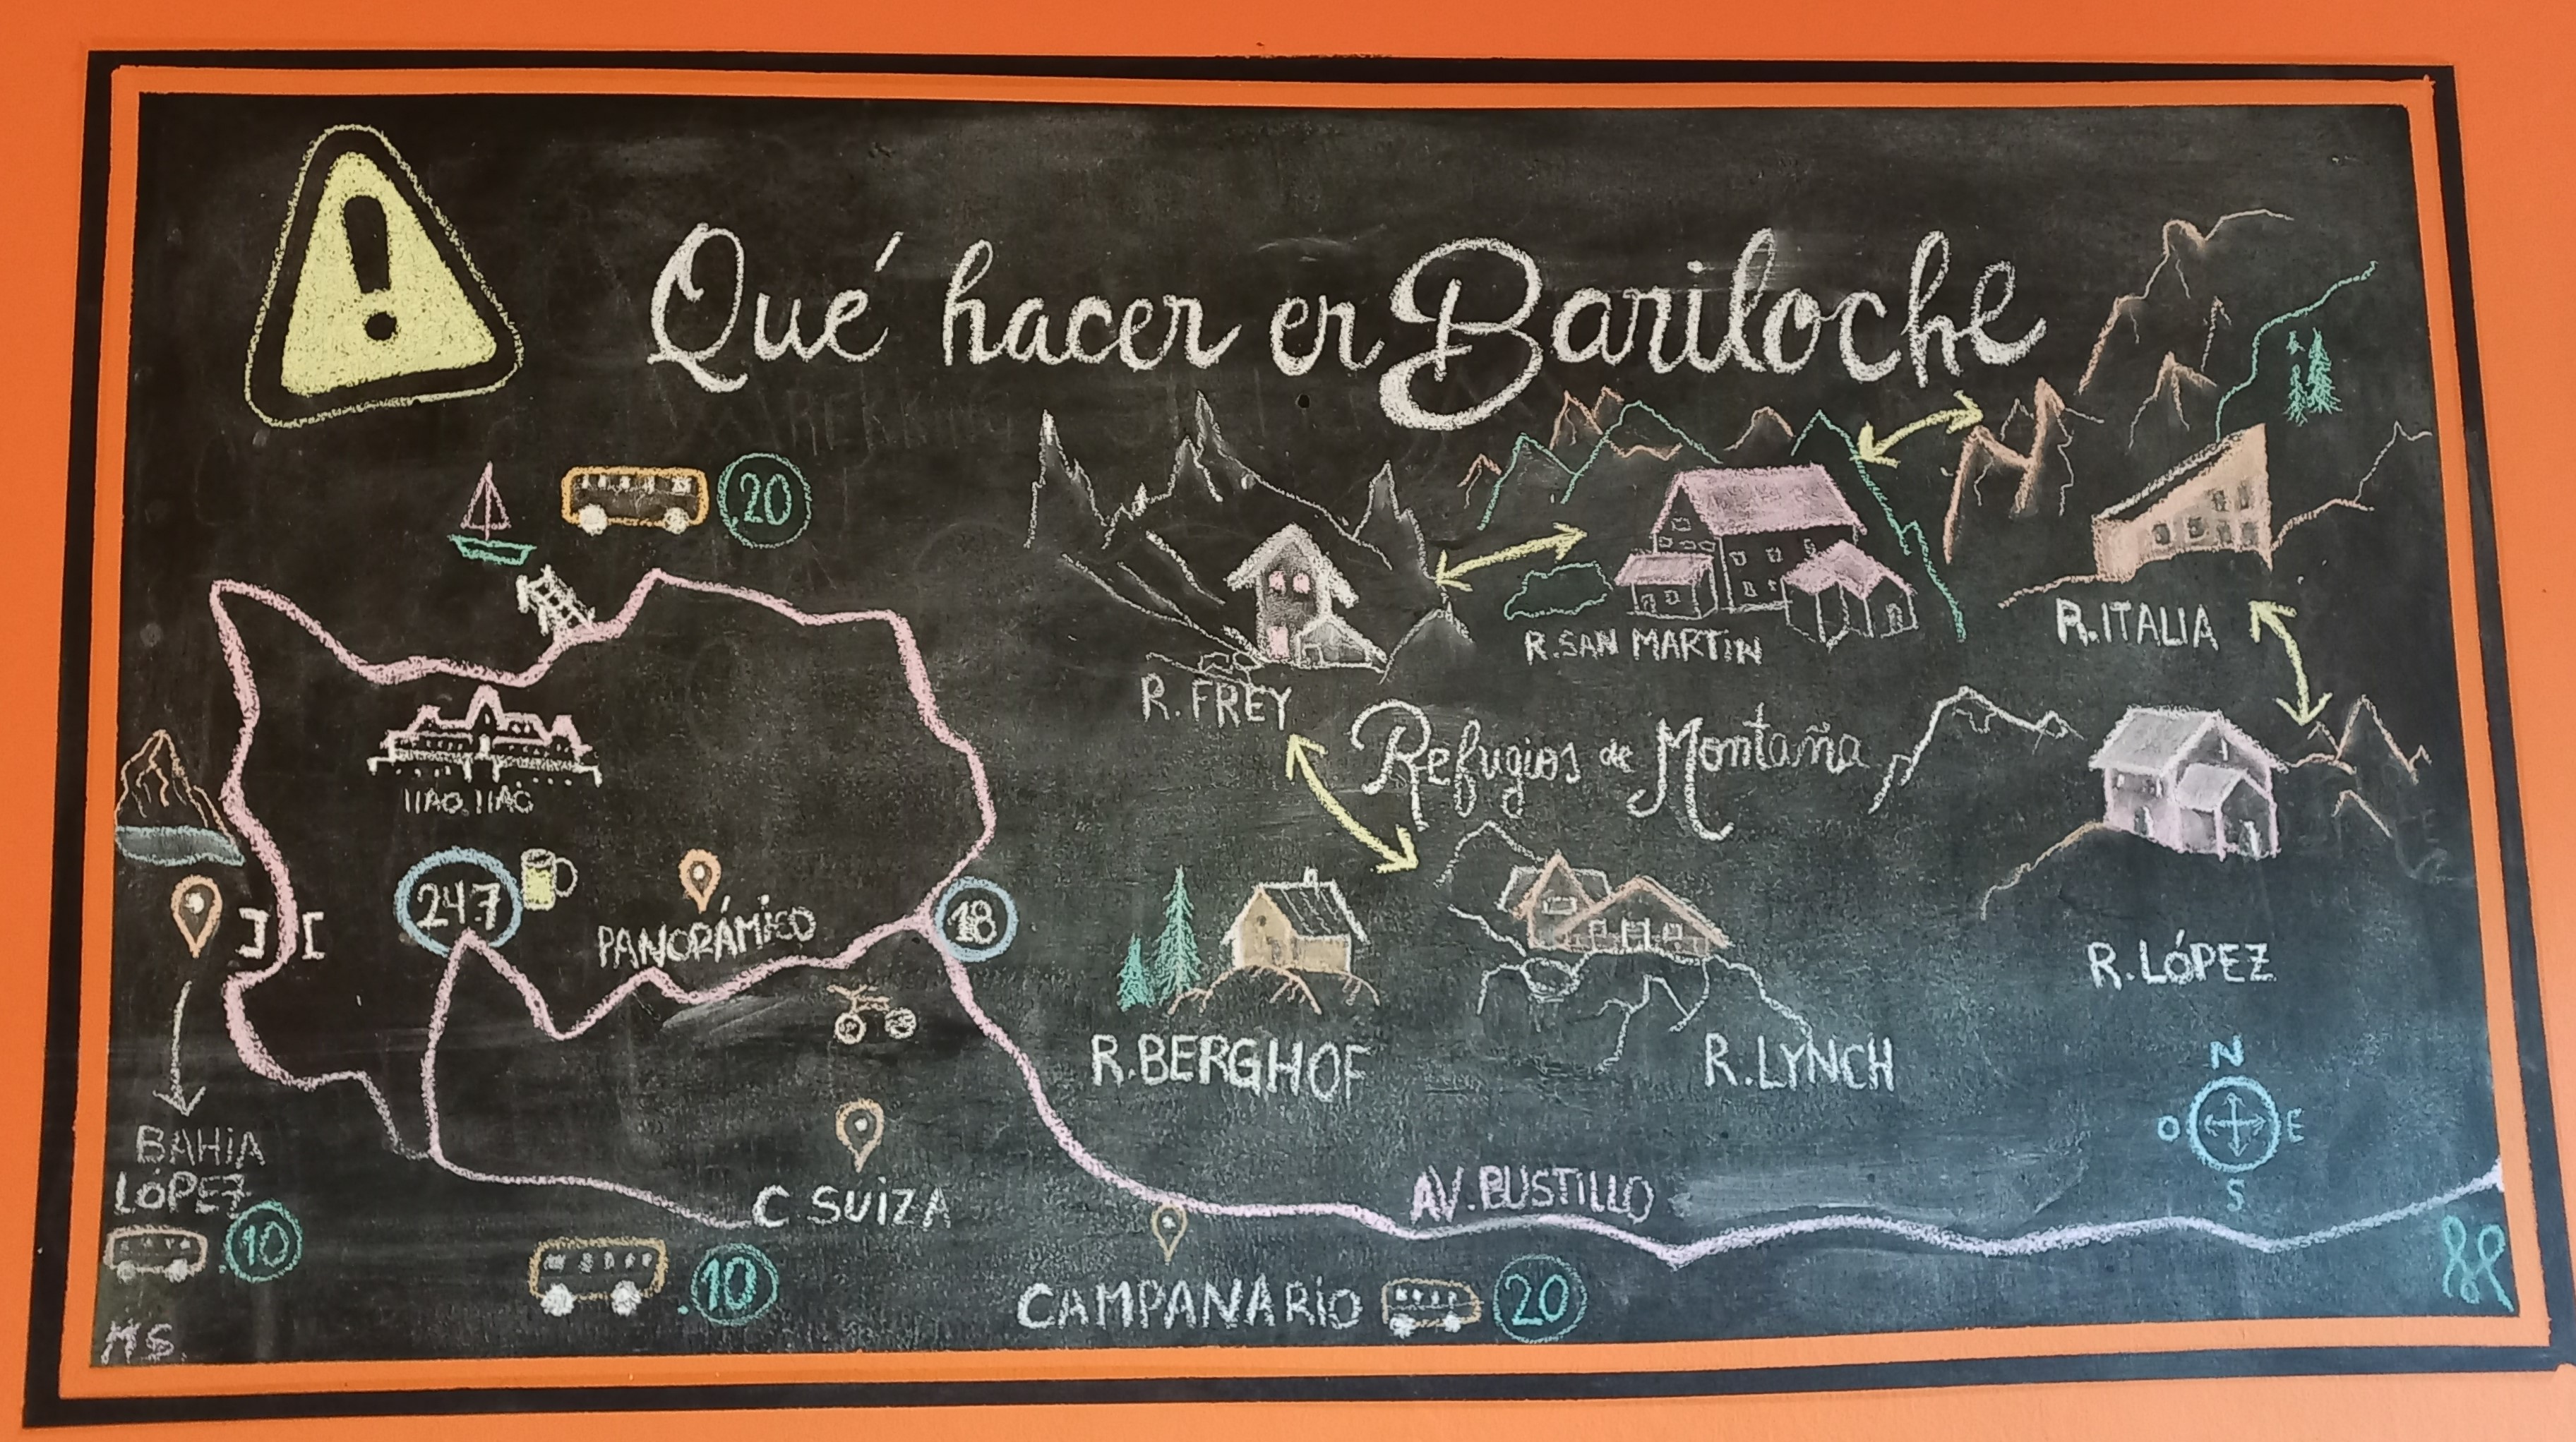 Qué hacer en Bariloche
20
R. FREY
R. SAN MARTIN
R. ITALIA
Refugios de Montaña
llAO. llAO
247
PANORÁMICO
18
R. LÓPEZ
R. BERGHOF
R. LYNCH
N
O E
S
BAHIA
LÓPEZ
10
C SUIZA
AV. BUSTILLO
.10
CAMPANARIO
20
MS